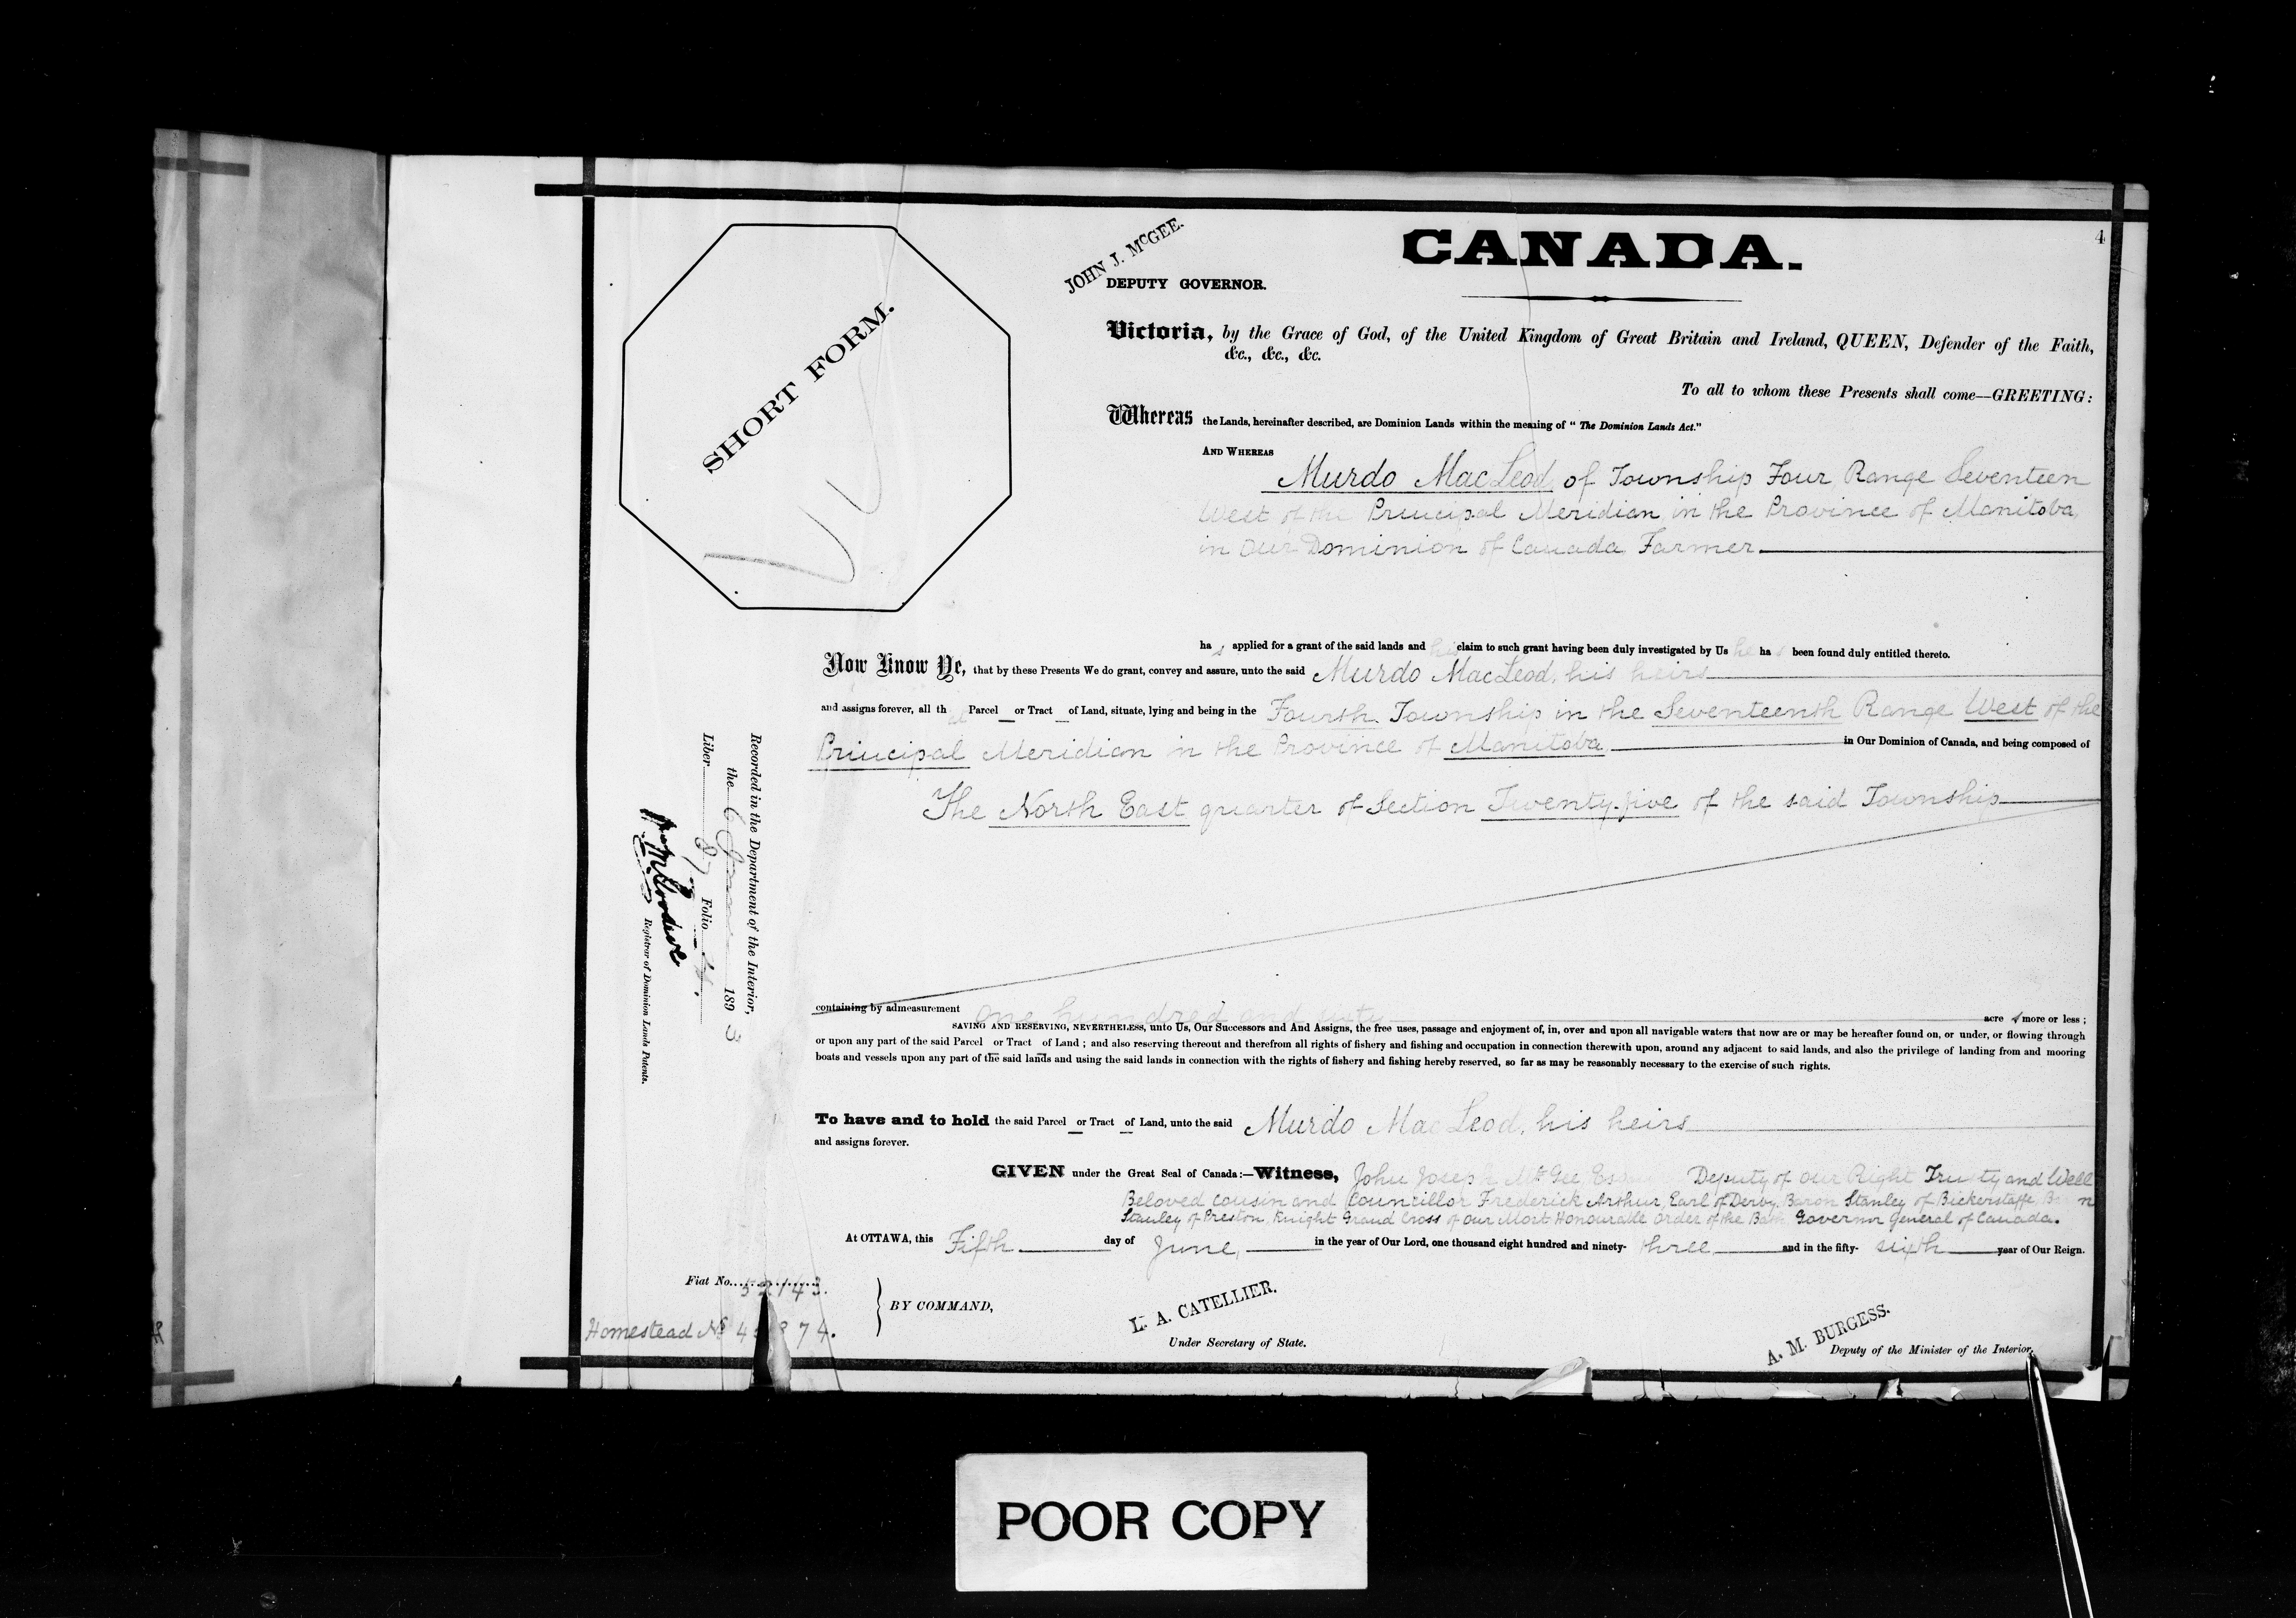 4
CANADA.
JOHN J. McGEE.
DEPUTY GOVERNOR.
SHORT FORM.
Victoria, by the Grace of God, of the United Kingdom of Great Britain and Ireland, QUEEN, Defender of the Faith,
&c., &c., &c.
To all to whom these Presents shall come—GREETING:
Whereas the Lands, hereinafter described, are Dominion Lands within the meaning of "The Dominion Lands Act."
AND WHEREAS
Murdo MacLeod, of Township Four, Range Seventeen
West of the Principal Meridian, in the Province of Manitoba,
in Our Dominion of Canada, Farmer
has applied for a grant of the said lands and his claim to such grant having been duly investigated by Us he has been found duly entitled thereto.
Now Know Ye, that by these Presents We do grant, convey and assure, unto the said Murdo MacLeod, his heirs
and assigns forever, all that Parcel or Tract of Land, situate, lying and being in the Fourth Township in the Seventeenth Range West of the
Principal Meridian in the Province of Manitoba in Our Dominion of Canada, and being composed of
The North East quarter of Section Twenty-five of the said Township
containing by admeasurement one hundred and sixty acres more or less;
SAVING AND RESERVING, NEVERTHELESS, unto Us, Our Successors and And Assigns, the free uses, passage and enjoyment of, in, over and upon all navigable waters that now are or may be hereafter found on, or under, or flowing through
or upon any part of the said Parcel or Tract of Land; and also reserving thereout and therefrom all rights of fishery and fishing and occupation in connection therewith upon, around any adjacent to said lands, and also the privilege of landing from and mooring
boats and vessels upon any part of the said lands and using the said lands in connection with the rights of fishery and fishing hereby reserved, so far as may be reasonably necessary to the exercise of such rights.
To have and to hold the said Parcel or Tract of Land, unto the said Murdo MacLeod, his heirs
and assigns forever.
GIVEN under the Great Seal of Canada:—Witness, John Joseph McGee Deputy of Our Right Trusty and Well
Beloved Cousin and Councillor Frederick Arthur, Earl of Derby, Baron Stanley of Bickerstaffe
Stanley of Preston, Knight Grand Cross of Our Most Honourable Order of the Bath Governor General of Canada.
At OTTAWA, this Fifth day of June, in the year of Our Lord, one thousand eight hundred and ninety-three and in the fifty-sixth year of Our Reign.
Fiat No. 52143.
Homestead No
BY COMMAND,
L. A. CATELLIER.
Under Secretary of State.
A. M. BURGESS.
Deputy of the Minister of the Interior.
Recorded in the Department of the Interior,
the 6 June 1893
Liber 87 Folio 4.
Registrar of Dominion Lands Patents.
POOR COPY